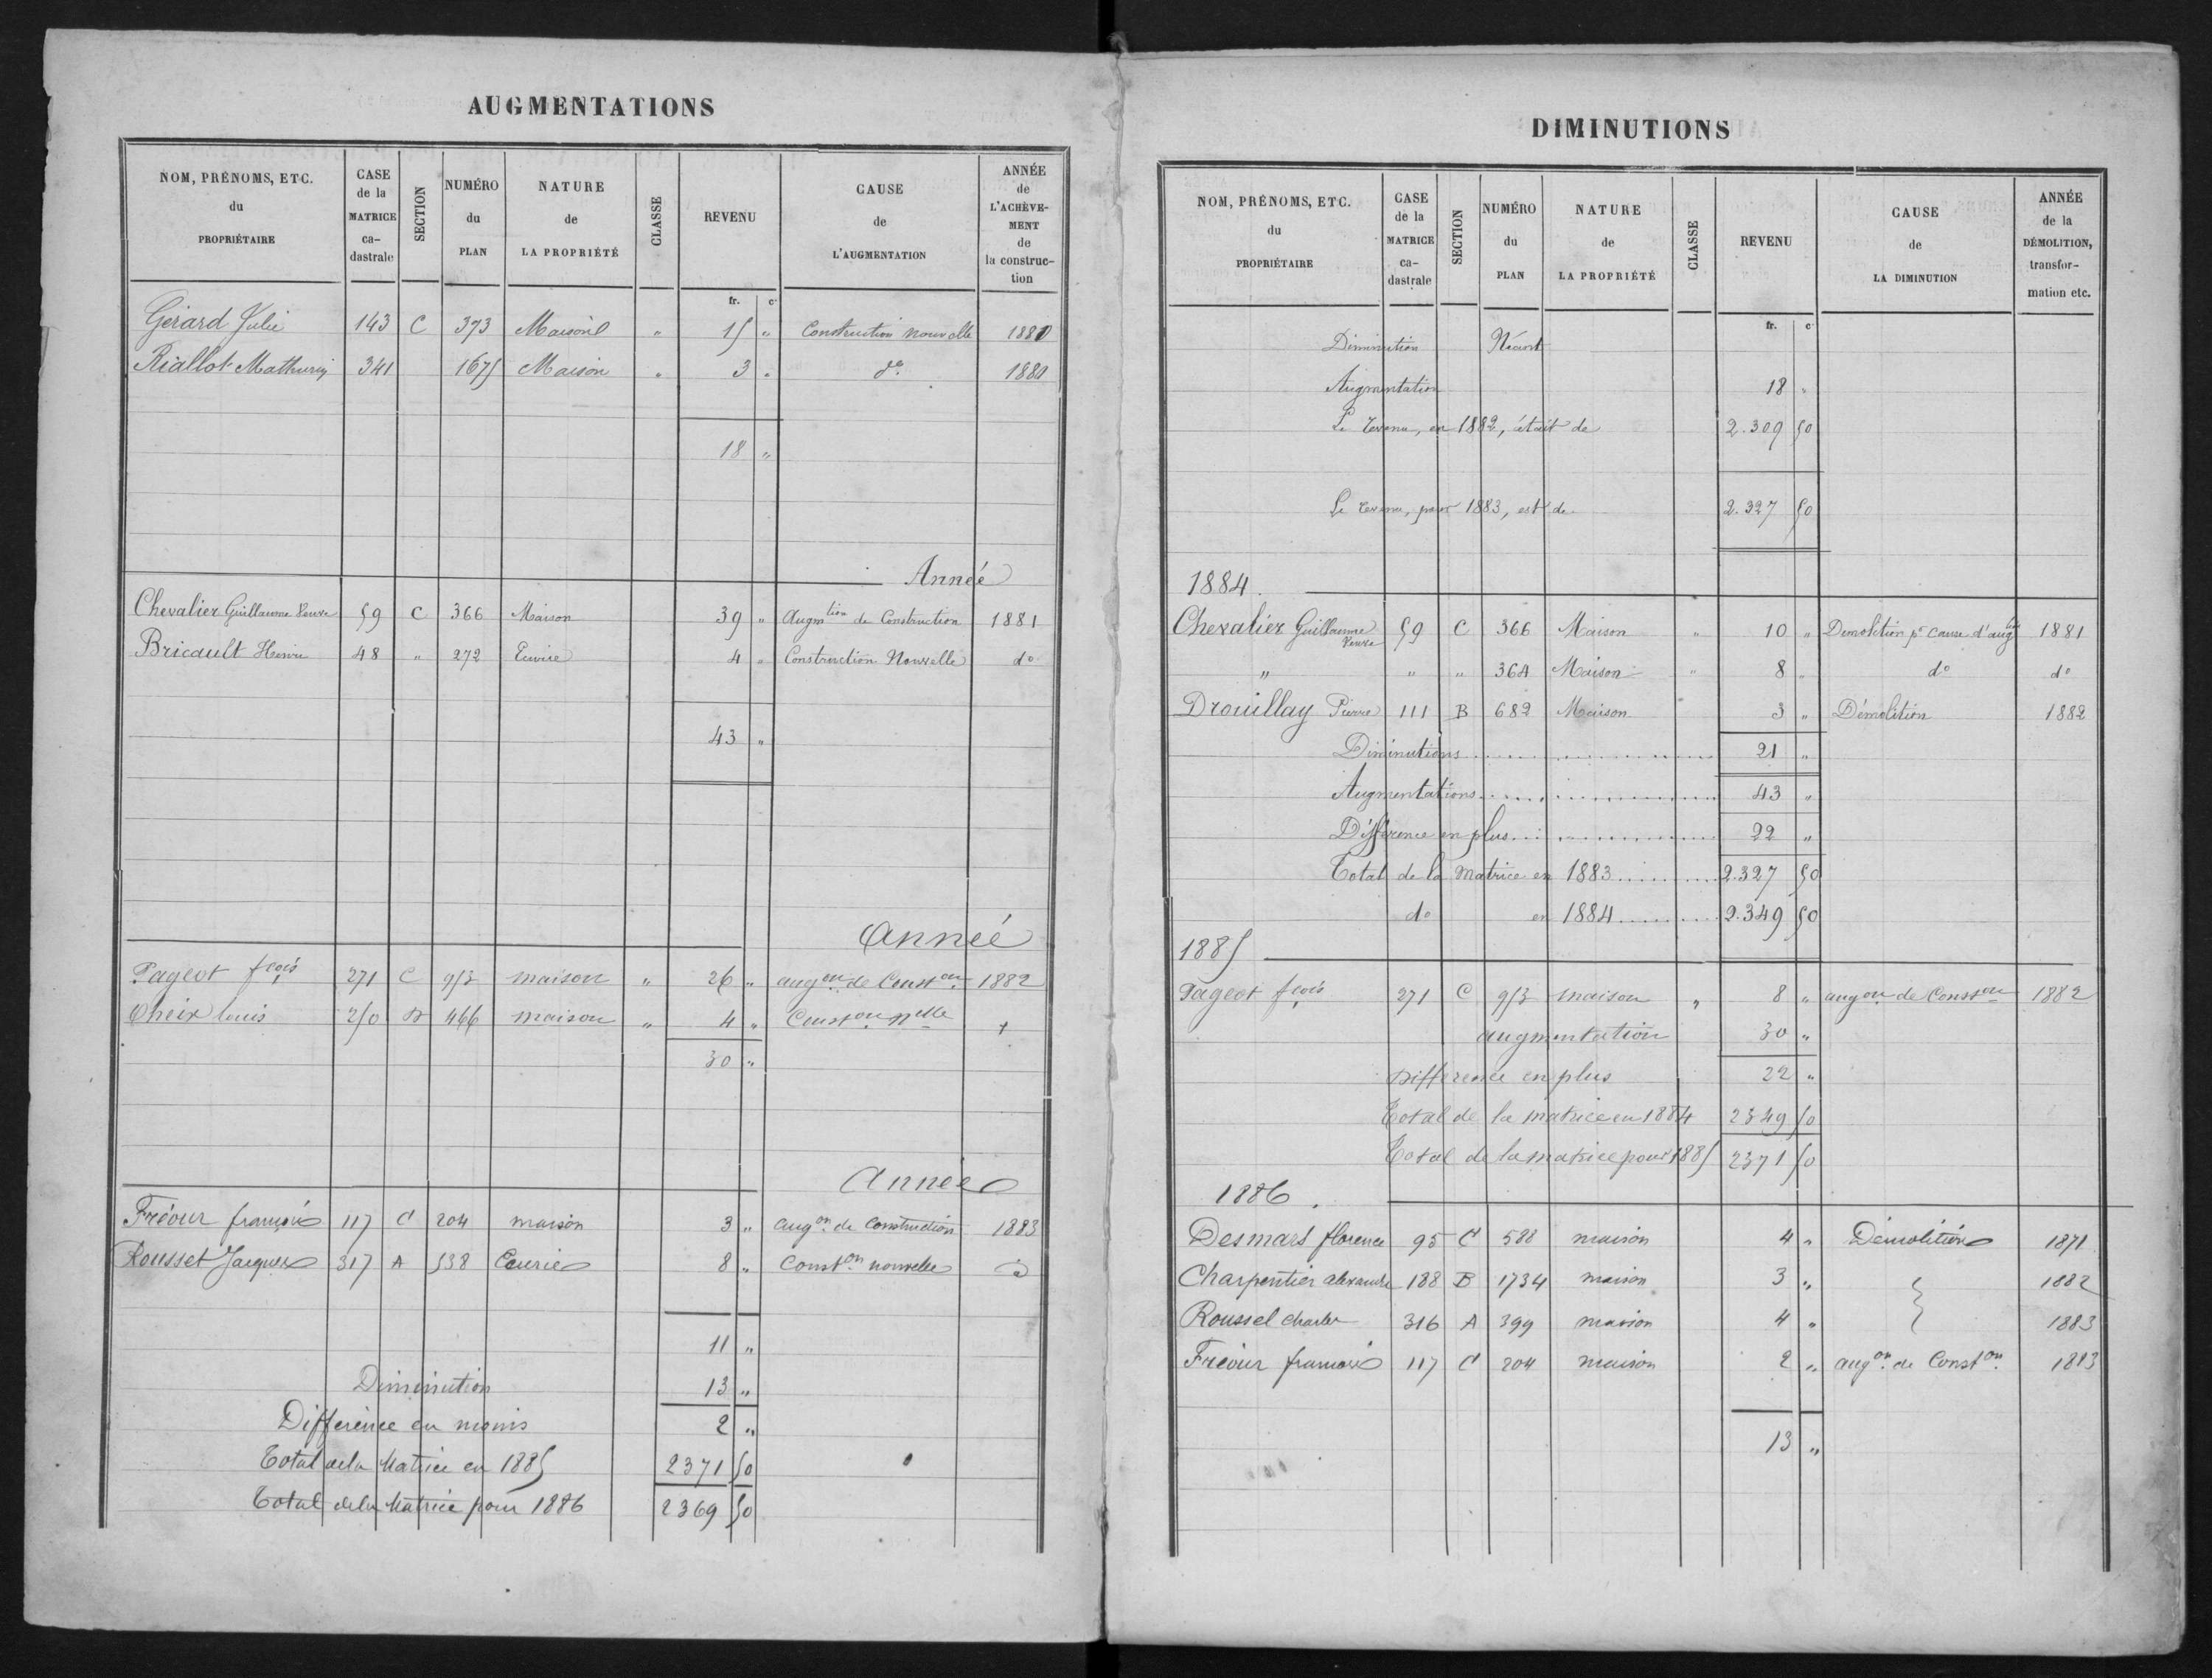 AUGMENTATIONS
NOM, PRÉNOMS, ETC. du PROPRIÉTAIRE | CASE de la MATRICE ca-dastrale | SECTION | NUMÉRO du PLAN | NATURE de LA PROPRIÉTÉ | CLASSE | REVENU | CAUSE de L'AUGMENTATION | ANNÉE de L'ACHÈVE-MENT de la construc-tion
fr. c.
Gérard Julie 143 C 373 Maison " 15 " Construction nouvelle 1880
Riallot Mathurin 341 1675 Maison " 3 " do 1880
18 "
Année
Chevalier Guillaume Veuve 59 C 366 Maison 39 " Augmtion de Construction 1881
Bricault Henri 48 " 272 Ecurie 4 " Construction Nouvelle do
43 "
Année
Pageot fçois 271 C 953 maison " 26 " augon de Conston 1882
Oheix louis 250 D 466 maison " 4 " Conston nelle
30 "
Année
Fréour françois 117 C 204 maison 3 " augon de Construction 1883
Rousset Jacques 317 A 538 Ecurie 8 " Conston nouvelle
11 "
Diminution 13 "
Différence en moins 2 "
Total de la Matrice en 1885 2371 50
Total de la Matrice pour 1886 2369 50
DIMINUTIONS
NOM, PRÉNOMS, ETC. du PROPRIÉTAIRE | CASE de la MATRICE ca-dastrale | SECTION | NUMÉRO du PLAN | NATURE de LA PROPRIÉTÉ | CLASSE | REVENU | CAUSE de LA DIMINUTION | ANNÉE de la DÉMOLITION, transfor-mation etc.
fr. c.
Diminution Néant
Augmentation 18 "
Le revenu, en 1882, était de 2.309 50
Le revenu, pour 1883, est de 2.327 50
1884.
Chevalier Guillaume Veuve 59 C 366 Maison " 10 " Demolition pr cause d'augtion 1881
" " " 364 Maison " 8 " do do
Drouillay Pierre 111 B 682 Maison 3 " Démolition 1882
Diminutions 21 "
Augmentations 43 "
Différence en plus 22 "
Total de la Matrice en 1883 2.327 50
do en 1884 2.349 50
1885
Pageot fçois 271 C 953 maison " 8 " augon de Conston 1882
augmentation 30 "
Différence en plus 22 "
Total de la matrice en 1884 2349 50
Total de la matrice pour 1885 2371 50
1886.
Desmars florence 95 C 588 maison 4 " Démolition 1871
Charpentier alexandre 188 B 1734 maison 3 " 1882
Roussel charles 316 A 399 maison 4 " 1883
Fréour françois 117 C 204 maison 2 " augon de Conston 1883
13 "